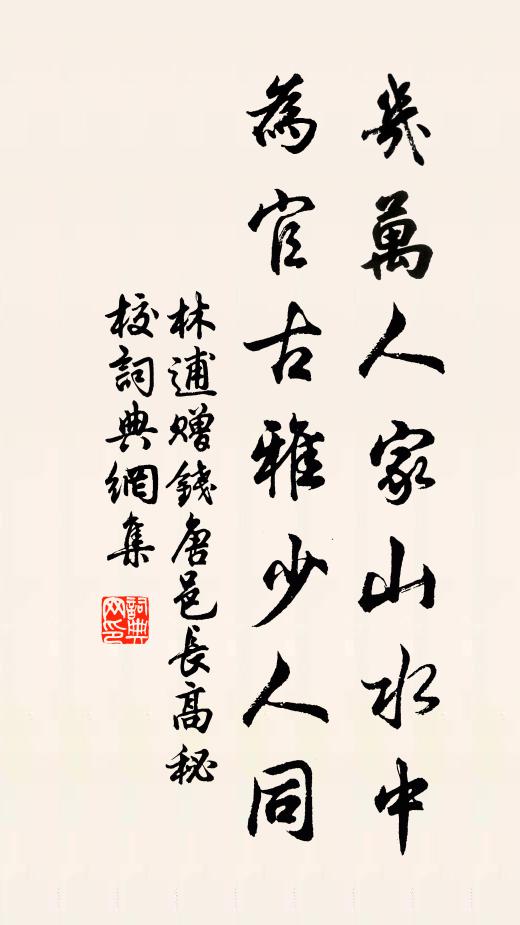 幾萬人家山水中
為官古雅少人同
林逋贈錢唐邑長高秘
校詞典網集
詞典
网印